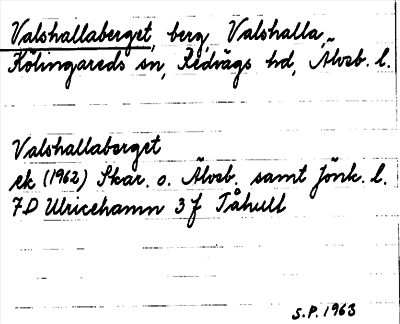 Valshallaberget, berg, Valshalla,
Kölingareds sn, Redvägs hd, Älvsb. l.
Valshallaberget
ek (1962) Skar. o. Älvsb. samt Jönk. l.
7D Ulricehamn 3 f Tåhull
S.P. 1963